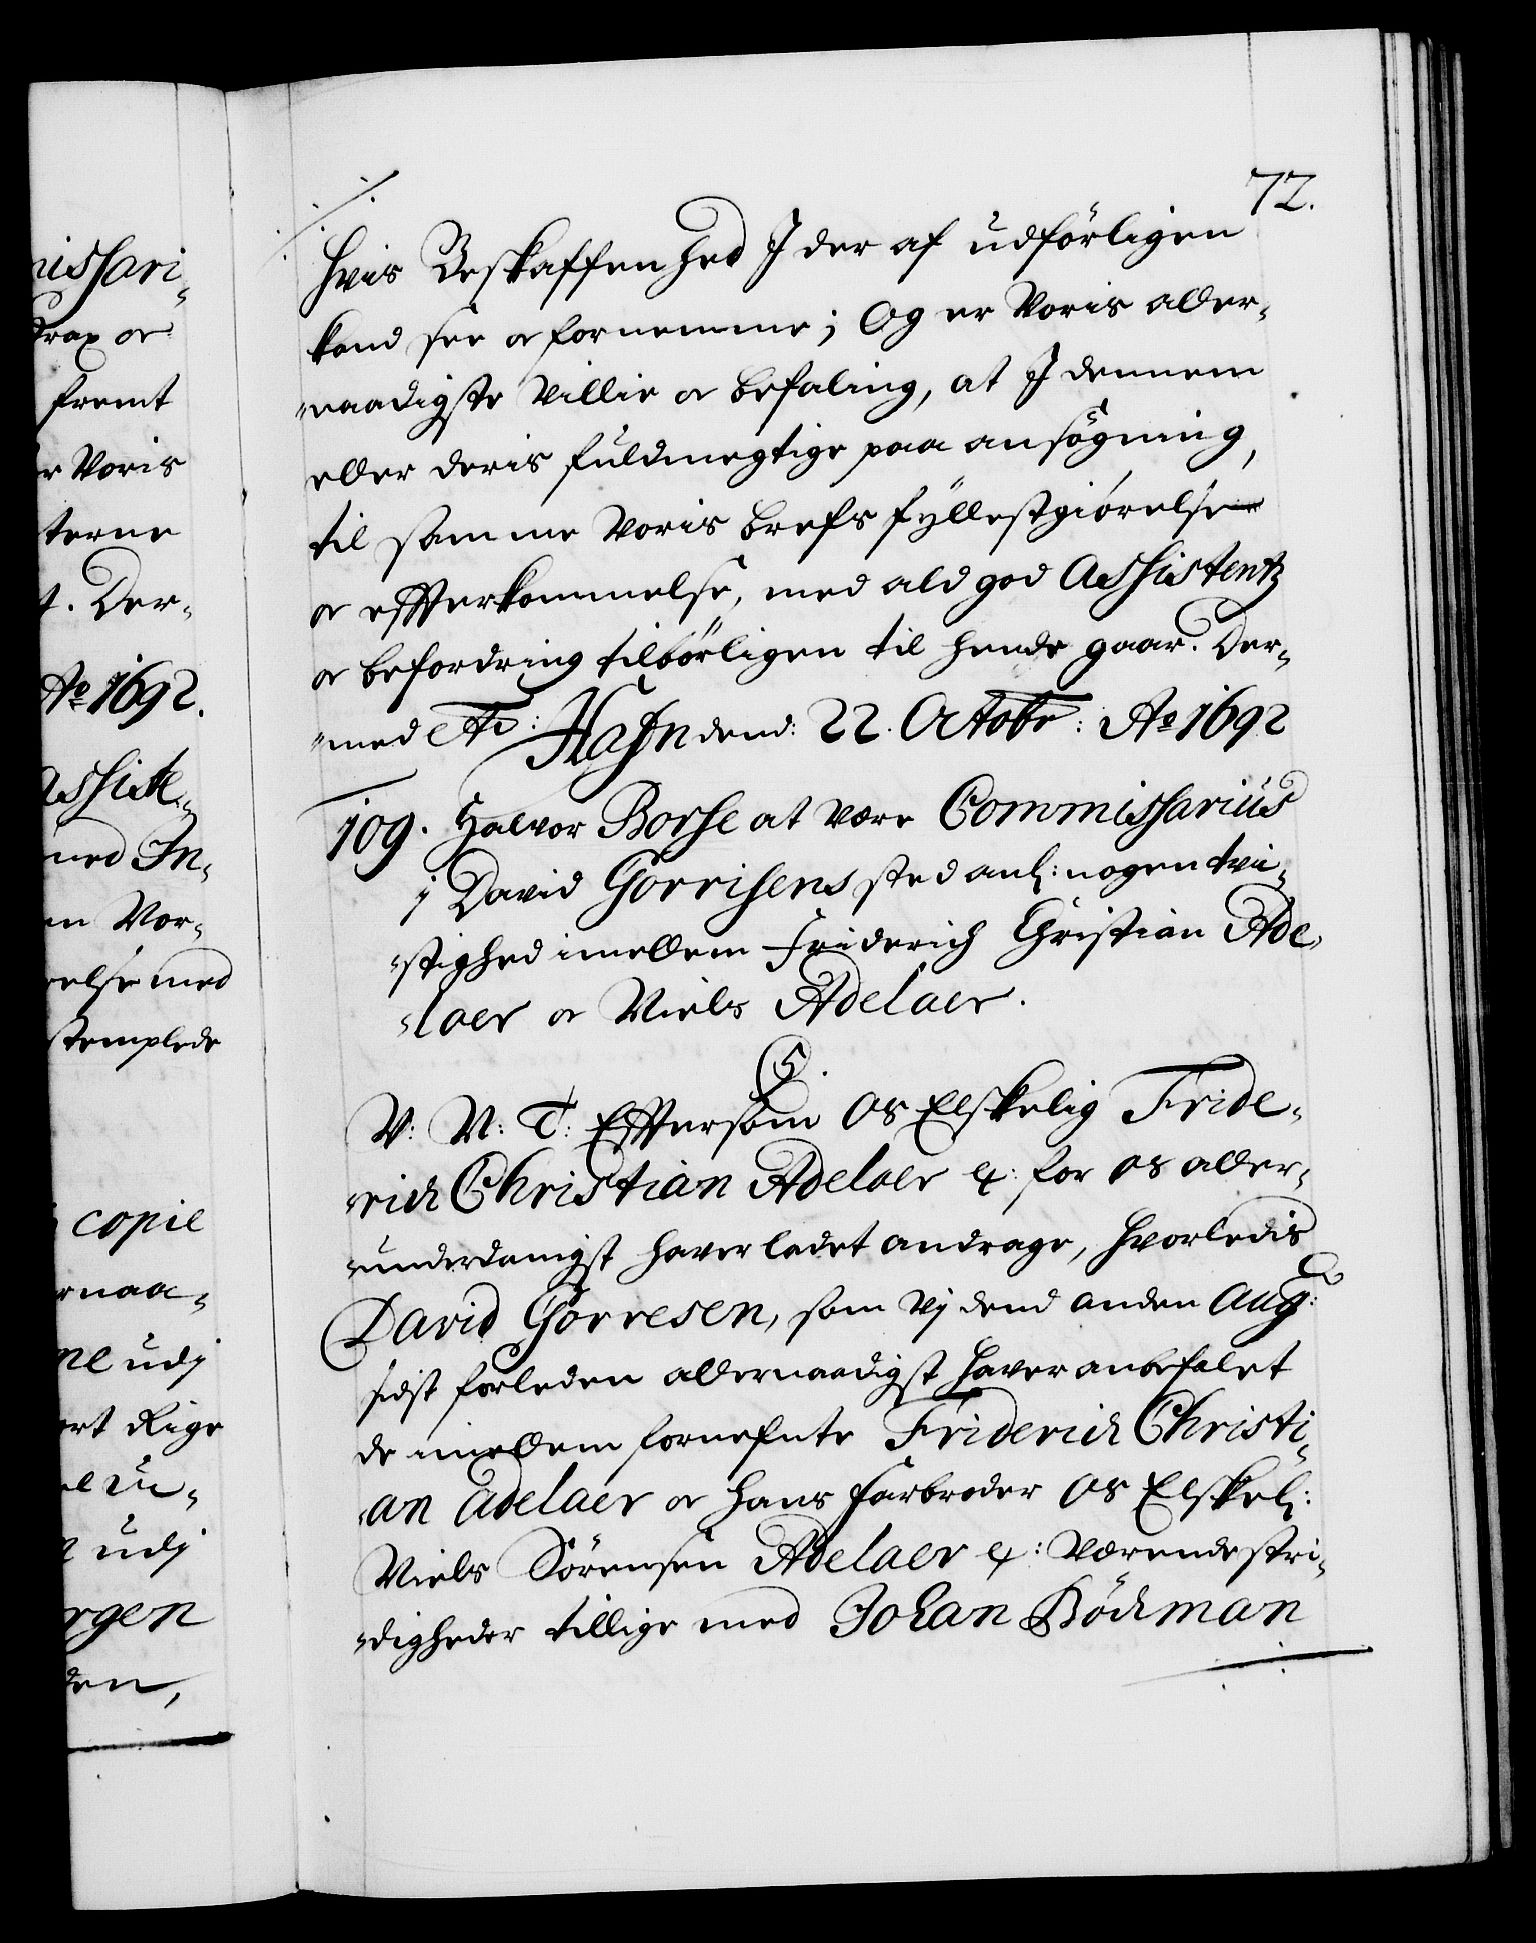 missari-
drag og
fremt
er Voris
terne
t. Der-
Ao 1692.
Assiste-
med In-
en Vor-
relse med
stemplede
copie
rnaa-
ne udj
ert Rige
udj
rgen
den,
72.
hvis Beskaffenhed I der af udförligen
kand see og fornemme; Og er Voris aller-
naadigste Villie og befaling, at I dennem
eller deris fuldmegtige paa ansögning,
til samme Voris brefs fyllestgiörelse
og effterkommelse, med ald god Assistentz
og befordring tilbörligen til hende gaar. Der-
med etc: Hafn dend: 22. Octobr: Ao 1692
109. Halvor Borse at være Commissarius
i David Görrisens sted anl: nogen tvi-
stighed imellem Friderich Christian Ade-
laer og Niels Adelaer.
C5.
V: N: T: Efftersom Os Elskelig Fride-
rich Christian Adelaer etc: for os aller-
underdanigst haver ladet andrage, hvorledis
David Görresen, som Vj dend anden Aug:
sidst forleden allernaadigst haver anbefalet
de imellem fornefnte Friderich Christi-
an Adelaer og hans Farbroder Os Elskel:
Niels Sörensen Adelaer etc: Værende stri-
digheder tillige med Johan Böckman